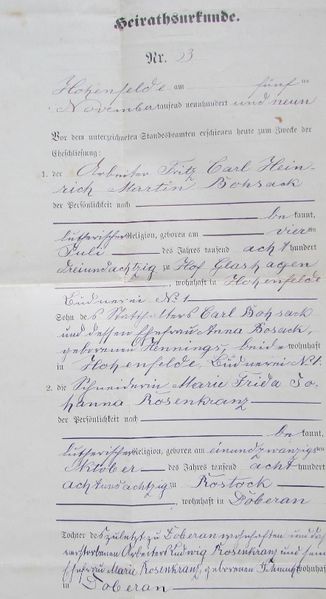 Heirathsurkunde.
Nr. 23
Hohenfelde am fünf
November tausend neunhundert und neun
Vor dem unterzeichneten Standesbeamten erschienen heute zum Zwecke der
Eheschließung:
1. der Arbeiter Fritz Carl Hein-
rich Martin Bohsack
der Persönlichkeit nach
be kannt,
lutherischer Religion, geboren am vier
Juli des Jahres tausend acht hundert
dreiundachtzig zu Hof Glashagen
, wohnhaft in Hohenfelde
Büdnerei No 1
Sohn des Carl Bohsack
und dessen Ehefrau Anna Bosack,
geborenen Hennings, beide wohnhaft
in Hohenfelde, Büdnerei No 1.
2. die Schneiderin Marie Frida Jo-
hanna Rosenkranz
der Persönlichkeit nach
be kannt,
lutherischer Religion, geboren am einundzwanzig
Oktober des Jahres tausend acht hundert
achtundachtzig zu Rostock
, wohnhaft in Doberan
Tochter des zuletzt zu Doberan wohnhaften und das.
verstorbenen Arbeiters Ludwig Rosenkranz und sein
Ehefrau Marie Rosenkranz, geborenen wohnhaft
in Doberan